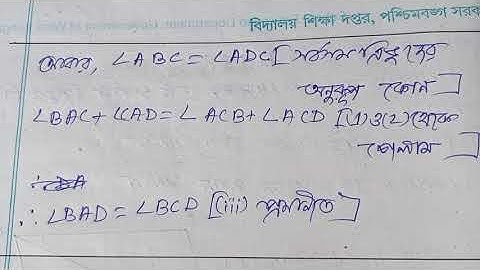 বিদ্যালয় শিক্ষা দপ্তর, পশ্চিমবঙ্গ সরক
আবার, ∠ABC = ∠ADC [সর্বসম ত্রিভুজের
অনুরূপ কোন]
∠BAC + ∠CAD = ∠ACB + ∠ACD [(1) ও (2) থেকে
পেলাম]
∴ ∠BAD = ∠BCD [(iii) প্রমানীত]